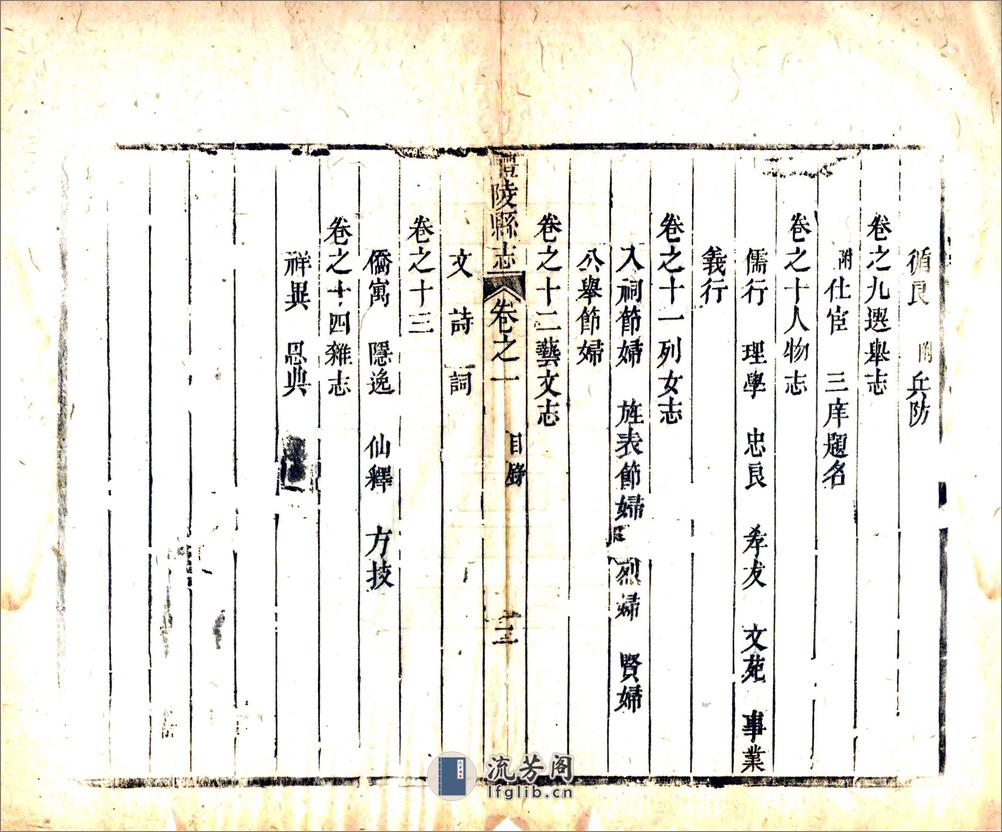 循良 附 兵防
卷之九選舉志
附 仕宦 三庠題名
卷之十人物志
儒行 理學 忠良 孝友 文苑 事業
義行
卷之十一列女志
入祠節婦 旌表節婦 烈婦 賢婦
公舉節婦
卷之十二藝文志
醴陵縣志 卷之一 目錄 三
文 詩 詞
卷之十三
僑寓 隱逸 仙釋 方技
卷之十四雜志
祥異 恩典
流芳阁
lfglib.cn